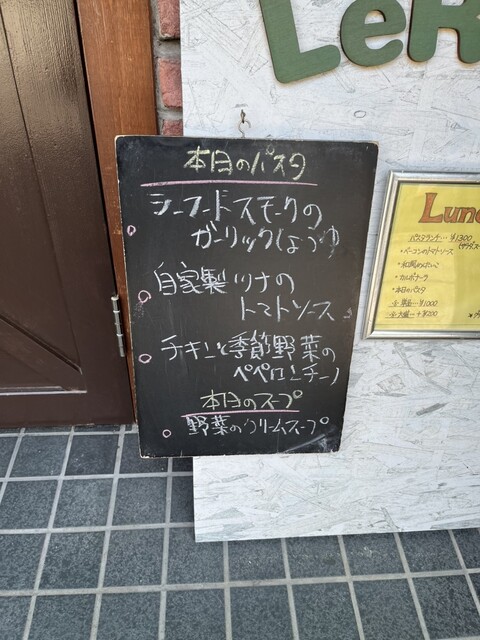 LeR
本日のパスタ
シーフードスモークの
ガーリックしょうゆ
自家製ツナの
トマトソース
チキンと季節野菜の
ペペロンチーノ
本日のスープ
野菜のクリームスープ
Lunc
パスタランチ…¥1300
・ベーコンのトマトソース
・カルボナーラ
・本日のパスタ
単品…¥1000
大盛…+¥200